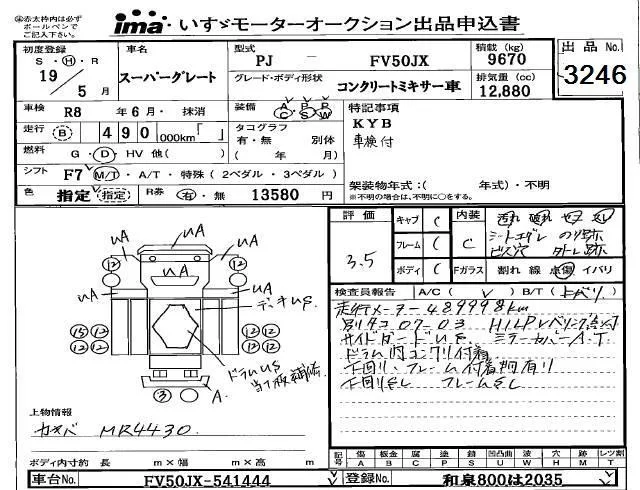 ④赤太枠内は必ず
ボールペンで
ご記入下さい。
ima いすゞモーターオークション出品申込書
初度登録 車名 型式 PJ — FV50JX 積載 (kg) 9670 出品 No.
S ・ H ・ R
19 / 5 月 スーパーグレート グレード・ボディ形状 コンクリートミキサー車 排気量 (cc) 12,880 3246
車検 R8 年 6 月・ 抹消 装備 A P P C S W 特記事項
走行 B 490 000km「 」 タコグラフ KYB
有・無 別体 車検付
燃料 G ・ D ・ HV 他( ) ( 年 月)
シフト F7 M/T ・ A/T ・ 特殊 ( 2ペダル ・ 3ペダル ) 架装物年式:( 年式)・不明
※不明の場合は、不明に○をする。
色 指定 (指定) R券 有 ・ 無 13580 円
評価 3.5 キャブ C 内装 C
フレーム C シートエグレ ノリ跡
ボディ C ビス穴
Fガラス 割れ 線 点傷 イバリ
検査員報告 A/C ( ) B/T ( )
走行メーター 489998km
別タコ 07-03 H/LPレベリング点灯
サイドガードUS ミラーカバーA.T
ドラム内コンクリ付着
下回り、フレーム付着物有り
UA UA
UA
UA UA UA
⑫ ⑫
デッキUS
⑮ ⑫ ⑫ ⑫
⑫ ⑫ ⑫ ⑫
ドラムUS
③ A.
上物情報
カヤバ MR4430
ボディ内寸約 長 m × 幅 m × 高 m
記号 傷 A 板金 B 腐 C 塗 P 錆 S 凹凸曲 U 波 W 穴 H 跡 M レンズ割 T
車台No. FV50JX-541444 登録No. 和泉800は2035